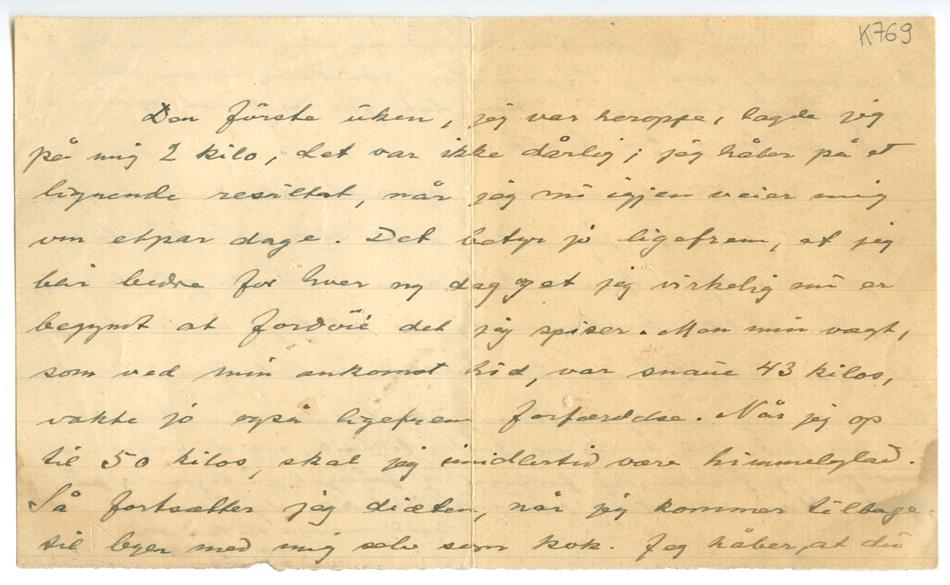 K769
Den første uken, jeg var heroppe, lagde jeg
på mig 2 kilo, det var ikke dårlig; jeg håber på et
lignende resultat, når jeg nu igjen veier mig
om etpar dage. Det betyr jo ligefrem, at jeg
blir bedre for hver ny dag og at jeg virkelig nu er
begynt at fordøie det jeg spiser. Men min vægt,
som ved min ankomst hid, var snaue 43 kilos,
vakte jo også ligefrem forfærdelse. Når jeg op
til 50 kilos, skal jeg imidlertid være himmelglad.
Så fortsætter jeg diæten, når jeg kommer tilbage
til byen med mig selv som kok. Jeg håber, at du